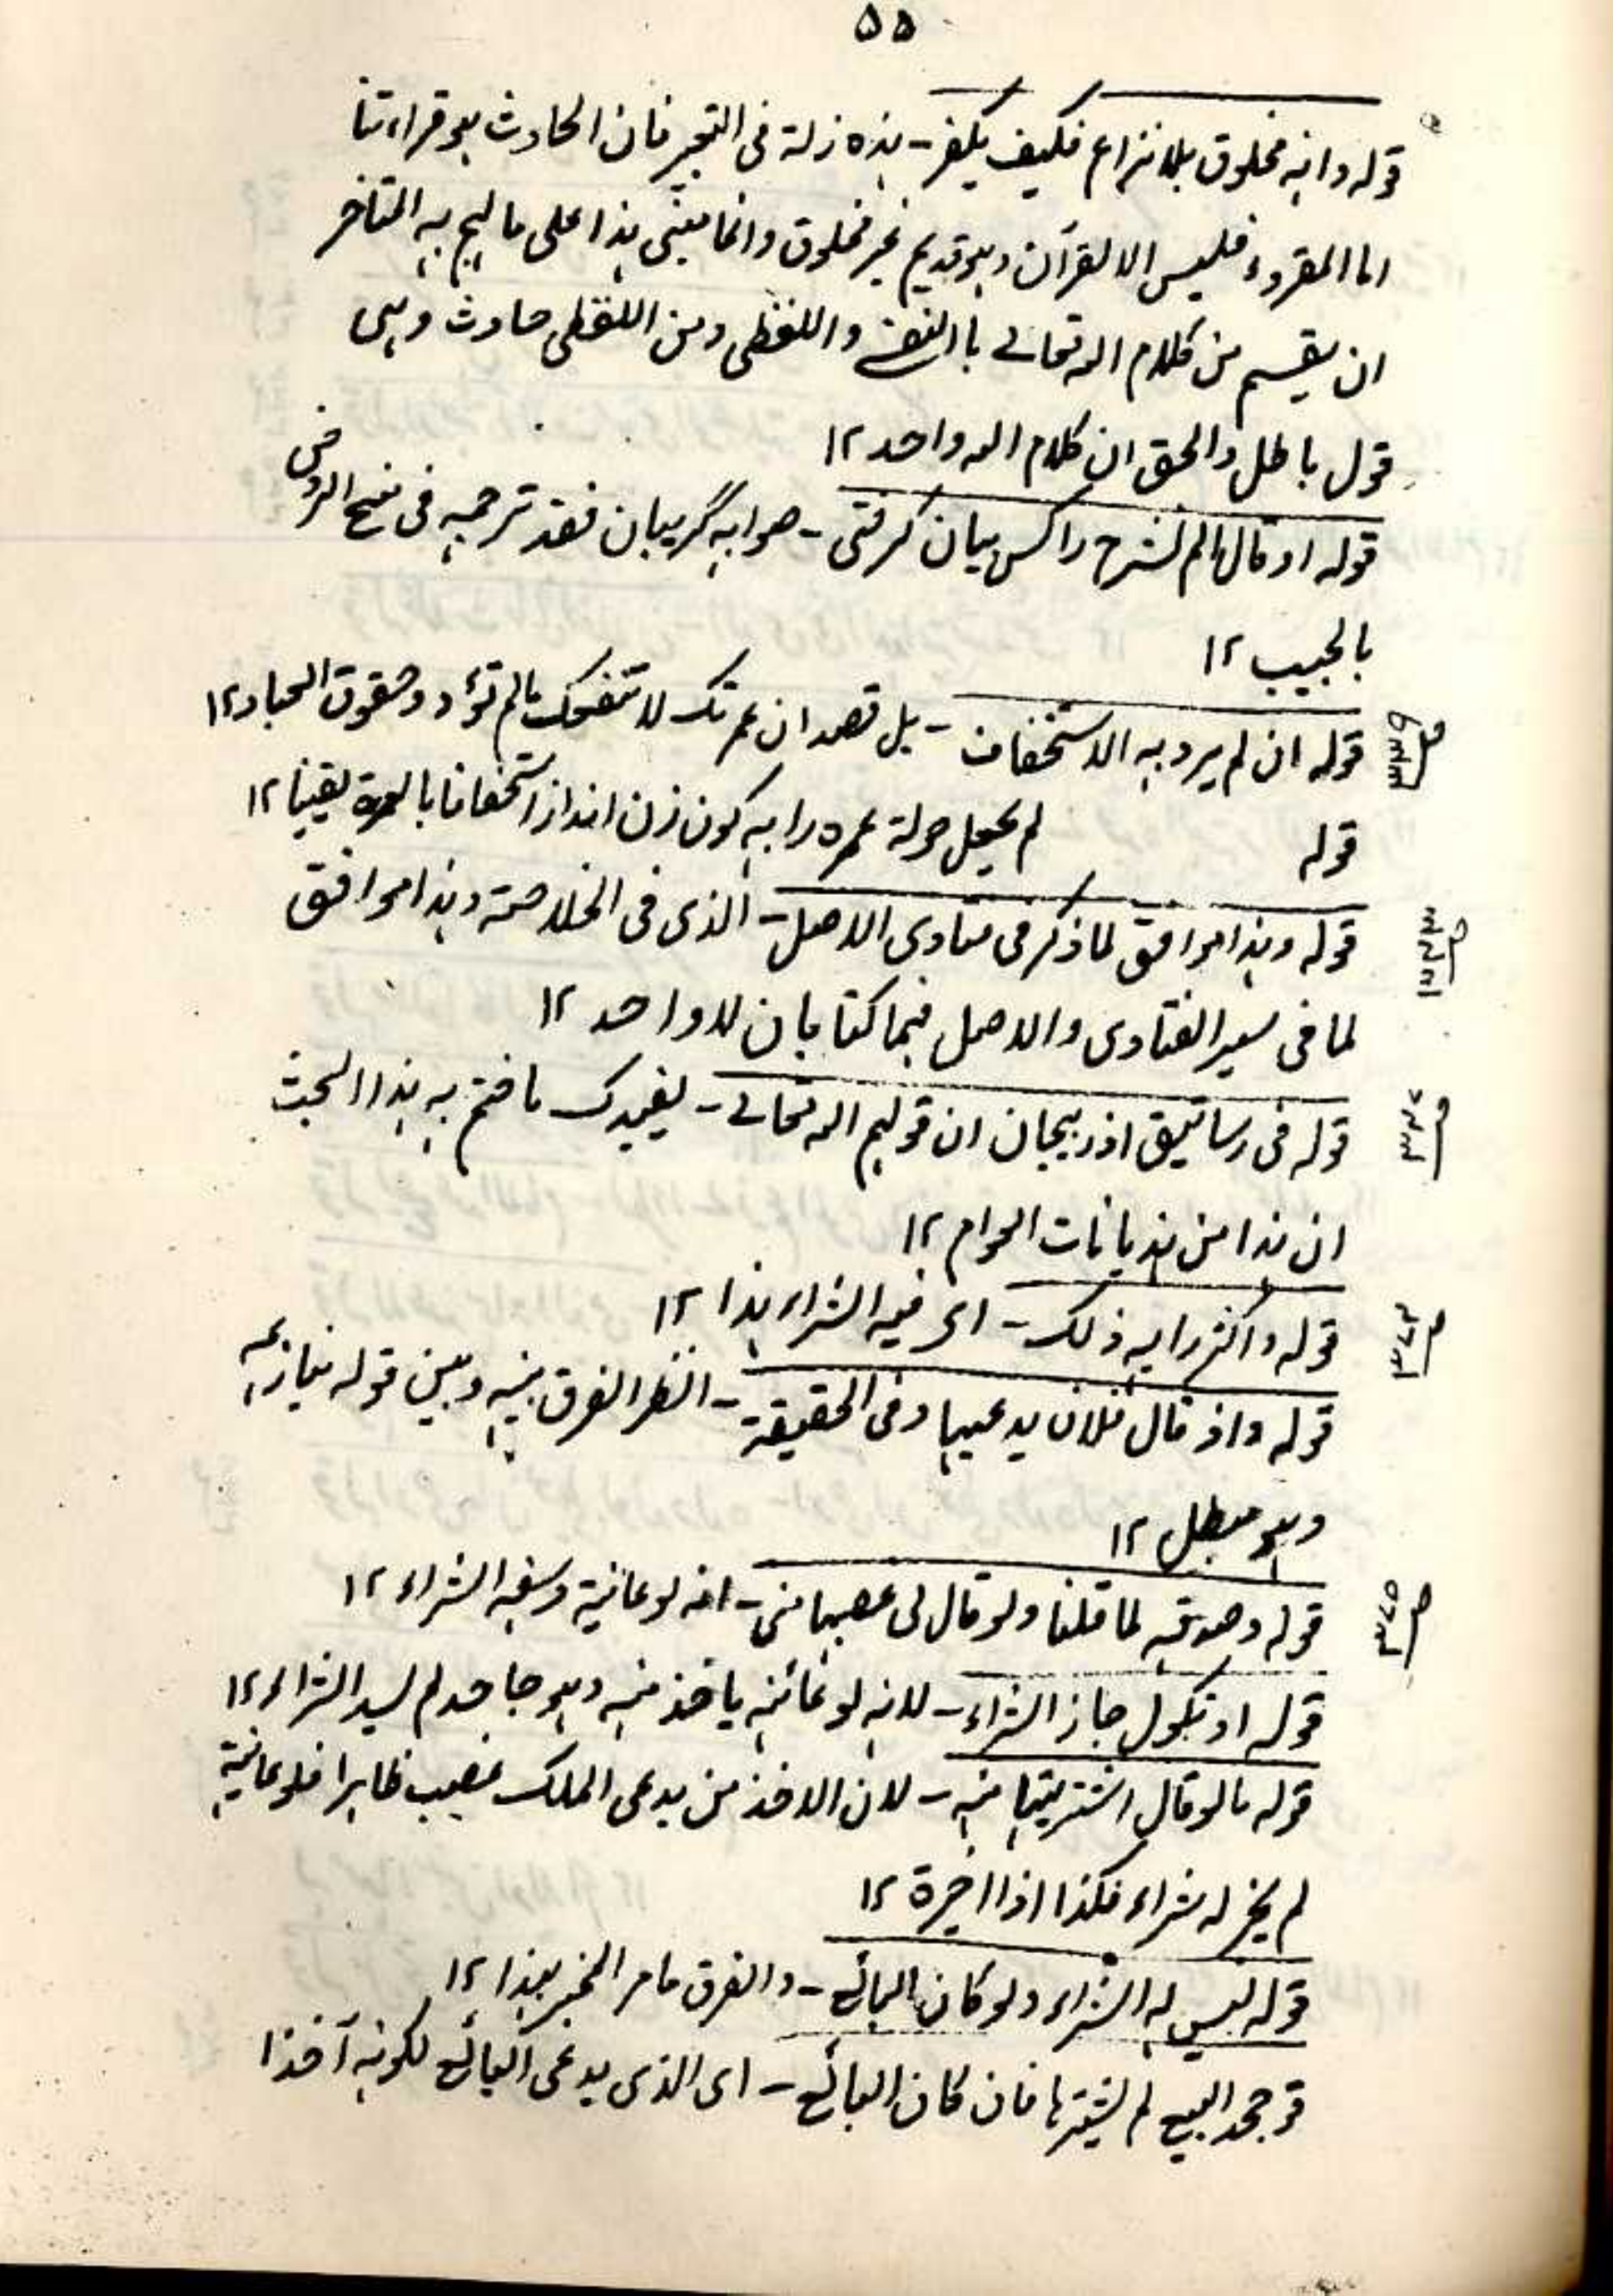 ۵۵
قوله وانه مخلوق بلا نزاع فكيف يكفر - ہذه زلة فى التعبير فان الحادث ہو قراءتنا
اما المقروء فليس الا القرآن وہو قديم غير مخلوق وانما يبتنى ہذا على ما لہج بہ المتاخر
ان يقسم من كلام اللہ تعالے باالنفسے واللفظى ومن اللفظى حادث وہى
قول باطل والحق ان كلام اللہ واحد ۱۲
قوله او قال الم نشرح را گريبان گرفتى - صوابہ گريبان فقد ترجمہ فى منح الروض
بالجيب ۱۲
ص ۳۳۹
قوله ان لم يرد بہ الاستخفاف - بل قصد ان عمرتك لا تنفعك مالم تؤد حقوق العباد ۱۲
قوله لم يجعل حولة عمره را بہ كون زن انداز استخفافا بالعمرة يقينا ۱۲
قوله وہذا موافق لما ذكر فى فتاوى الاصل - الذى فى الخلاصة وہذا موافق
لما فى سير الفتاوى والاصل فہما كتابان لا واحد ۱۲
قوله فى رساتيق اذربيجان ان قولہم اللہ تعالے - يفيدك ما ختم بہ ہذا البحث
ان ہذا من ہذيانات العوام ۱۲
ص ۳۷۴
قوله واكثر رايہ ذلك - اى فيہ الشراء ہذا ۱۲
قوله واذ قال فلان يدعيہا وفى الحقيقة - انظر الفرق بينہ وبين قوله ينازعہ
وہو مبطل ۱۲
ص ۳۷۵
قوله وصدقہ لما قلنا ولو قال لى غصبہا منى - لانہ لو عاينہ وسعہ الشراء ۱۲
قوله او نكول جاز الشراء - لانہ لو عاينہ ياخذ منہ وہو جاحد لم يسعہ الشراء ۱۲
قوله مالو قال اشتريتہا منہ - لان الاخذ من يدعى الملك غصب ظاہرا فلو عاينہ
لم يجز لہ شراء فكذا اذا اخبره ۱۲
قوله ليس لہ الشراء ولو كان البائع - والفرق ما مر الخبر بہذا ۱۲
قو جحد البيع لم يشترہا فان كان البائع - اى الذى يدعى البائع لكونہ آخذا